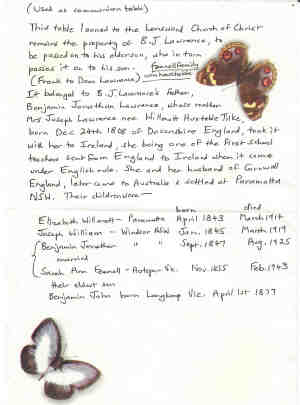 (Used as communion table)
This table loaned to the Lenswood Church of Christ
remains the property of B.J Lawrance, to
be passed on to his elderson, who in turn
passes it on to his son.
(Frank to Dean Lawrance)
It belonged to B.J Lawrance's Father,
Benjamin Jonathan Lawrance, whose mother
Mrs Joseph Lawrance nee Willmott
born Dec 24th 1808 of Devonshire England, took it
with her to Ireland, she being one of the First School
teachers sent from England to Ireland when it came
under English rule. She and her husband of Cornwall
England, later came to Australia & settled at Paramatta
NSW. Their children were—
born died
Elizabeth Willmott — Paramatta April 1843 March 1914
Joseph William — Windsor Jan. 1845 March 1919
Benjamin Jonathan " " Sept. 1847 Aug. 1925
married
Sarah Ann Fennell — Vic. Nov. 1855 Feb. 1943
their eldest son
Benjamin John born Vic. April 1st 1877